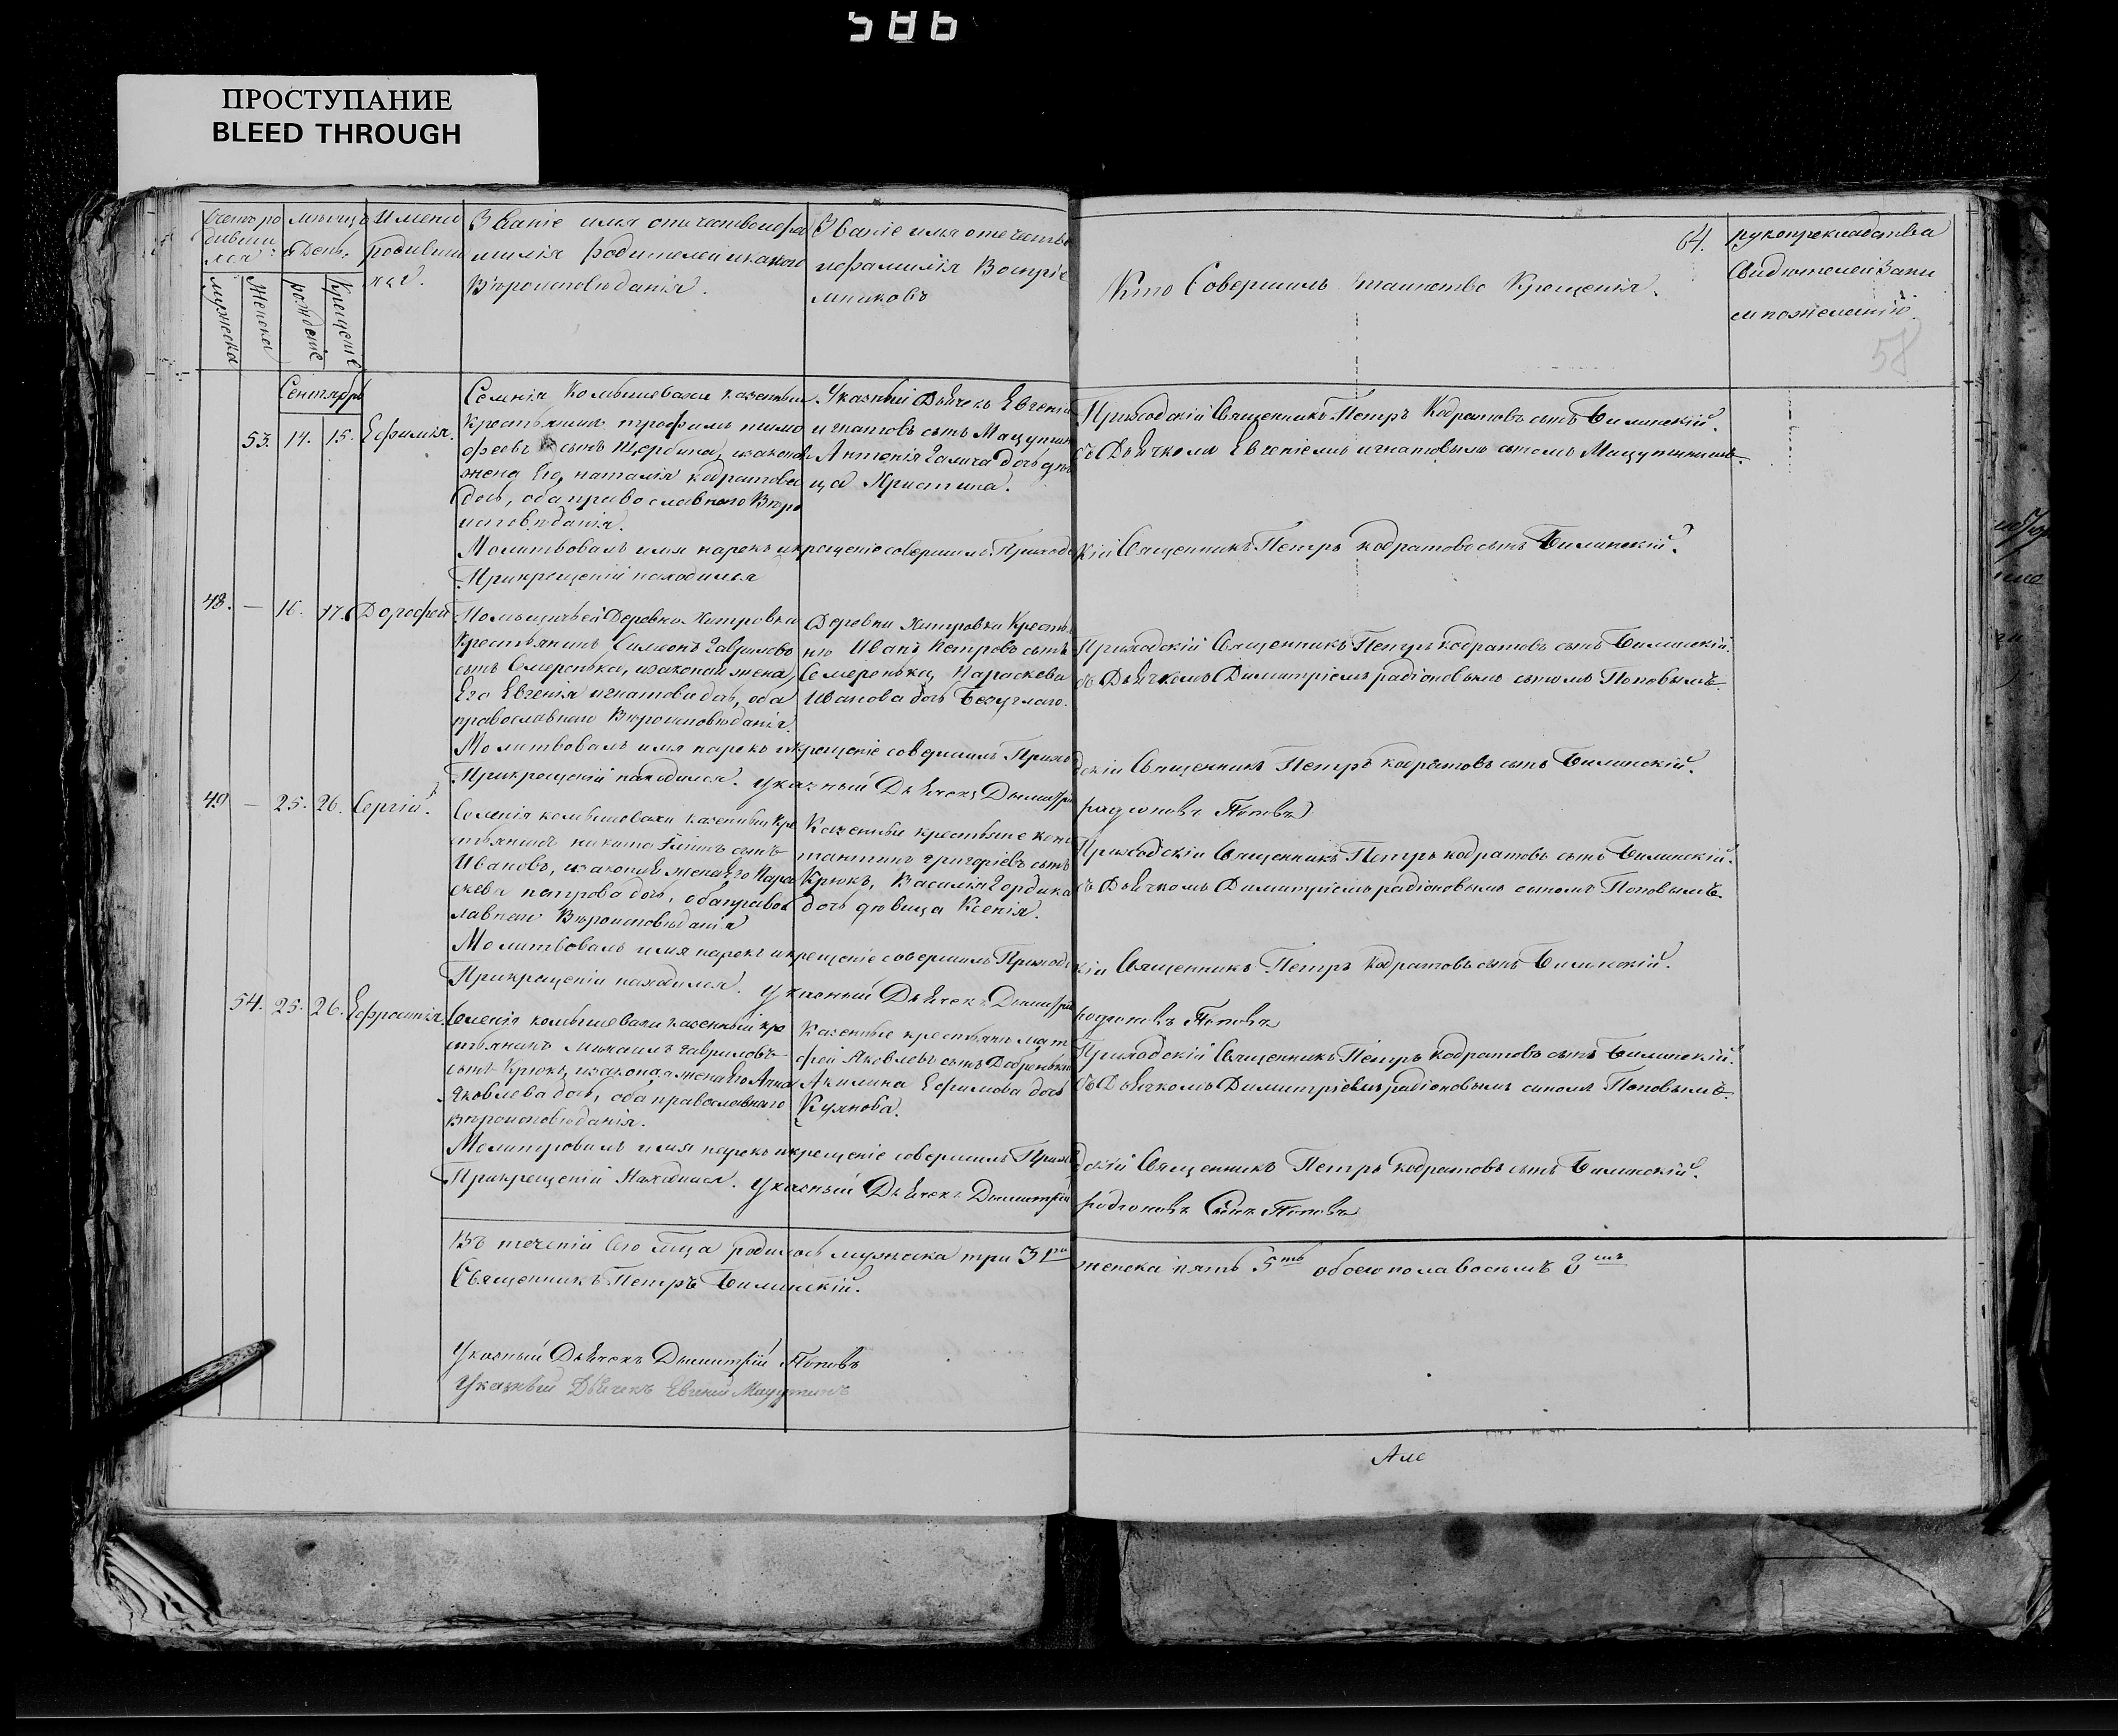 586
ПРОСТУПАНИЕ
BLEED THROUGH
Званіе имя отичествоифа
милія родителей икакого
Вѣроисповѣданія.
Званіе имя отечество
ифамилія Воспріе
мниковъ
Имена
родивши
хся.
мужеска
Женска
рожденіе
Крещеніе
Кто Совершилъ таинство Крещенія.
64.
рукоприкладства
Свидѣтелей Запи
си пожеланію
58
Сентябрь
53. 14. 15. Ефимія.
Селенія Комышевахи казенный
Крестьянинъ трофимъ тимо
феевъ сынъ Щербина, изаконая
жена Его, наталія кодратова
дочь, оба православнаго Вѣро
исповѣданія.
Указный Дьячекъ Евгеній
игнатовъ сынъ Мацутинъ
Антонія Галича дочь дѣви
ца Христина.
Приходскій Священникъ Петръ Кодратовъ сынъ Билинскій.
съ Дьячкомъ Евгеніемъ игнатовымъ сыномъ Мацутинымъ.
Молитвовалъ имя нарекъ икрещеніе совершилъ Приходскій Священникъ Петръ кодратовъ сынъ Билинскій.
Прикрещеній находился
48. — 16. 17. Дорофей
Помѣщичьей Деревни Хитровки
Крестьянинъ Симеонъ Гавриловъ
сынъ Смеренька, изаконая жена
Его Евгенія игнатова дочь, оба
православнаго Вѣроисповѣданія.
Деревни Хитровки Кресть
не Иванъ Петровъ сынъ
Семеренька, Параскева
Иванова дочь Безуглаго.
Приходскій Священникъ Петръ кодратовъ сынъ Билинскій.
съ Дьячкомъ Димитріемъ радіоновымъ сыномъ Поповымъ.
Молитвовалъ имя нарекъ икрещеніе совершилъ Приходскій Священникъ Петръ кодратовъ сынъ Билинскій.
Прикрещеній находился. указный Дьячекъ Дымитрій радионовъ Поповъ
49 — 25. 26. Сергій.
Селенія комышевахи казенный Кре
стьянинъ никита сынъ
Ивановъ, изаконая жена Его Пара
скева петрова дочь, обаправос
лавнаго Вѣроисповѣданія
Казенные крестьяне конс
тантинъ григоріевъ сынъ
Крюкъ, Василія Гордика
дочь дѣвица Ксенія.
Приходскій Священникъ Петръ кодратовъ сынъ Билинскій.
съ Дьячкомъ Димитріемъ радіоновымъ сыномъ Поповымъ.
Молитвовалъ имя нарекъ икрещеніе совершилъ Приходскій Священникъ Петръ Кодратовъ сынъ Билинскій.
Прикрещеніи находился. указный Дьячекъ Дымитрій родионовъ Поповъ
54. 25. 26. Ефросинія
Селенія комышевахи казенный кре
стьянинъ Михаилъ Гавриловъ
сынъ Крюкъ, изаконая жена Его Анна
Яковлева дочь, оба православнаго
вѣроисповѣданія.
Казенные крестьяне мат
фей Яковлевъ сынъ Добренькій
Акилина Ефимова дочь
Куянова.
Приходскій Священникъ Петръ кодратовъ сынъ Билинскій.
съ Дьячкомъ Димитріемъ радіоновымъ сыномъ Поповымъ.
Молитвовалъ имя нарекъ икрещеніе совершилъ Приходскій Священникъ Петръ кодратовъ сынъ Билинскій.
Прикрещеній Находился. указный Дьячекъ Дымитрій родионовъ Сынъ Поповъ
Въ теченіи Сего мца родилось мужеска три 3 ри женска пять 5 ть обоего пола восемъ 8 мъ
Священникъ Петръ Билинскій.
Указный Дьячекъ Дымитрій Поповъ
Указный Дьячекъ Евгеній Мацутинъ